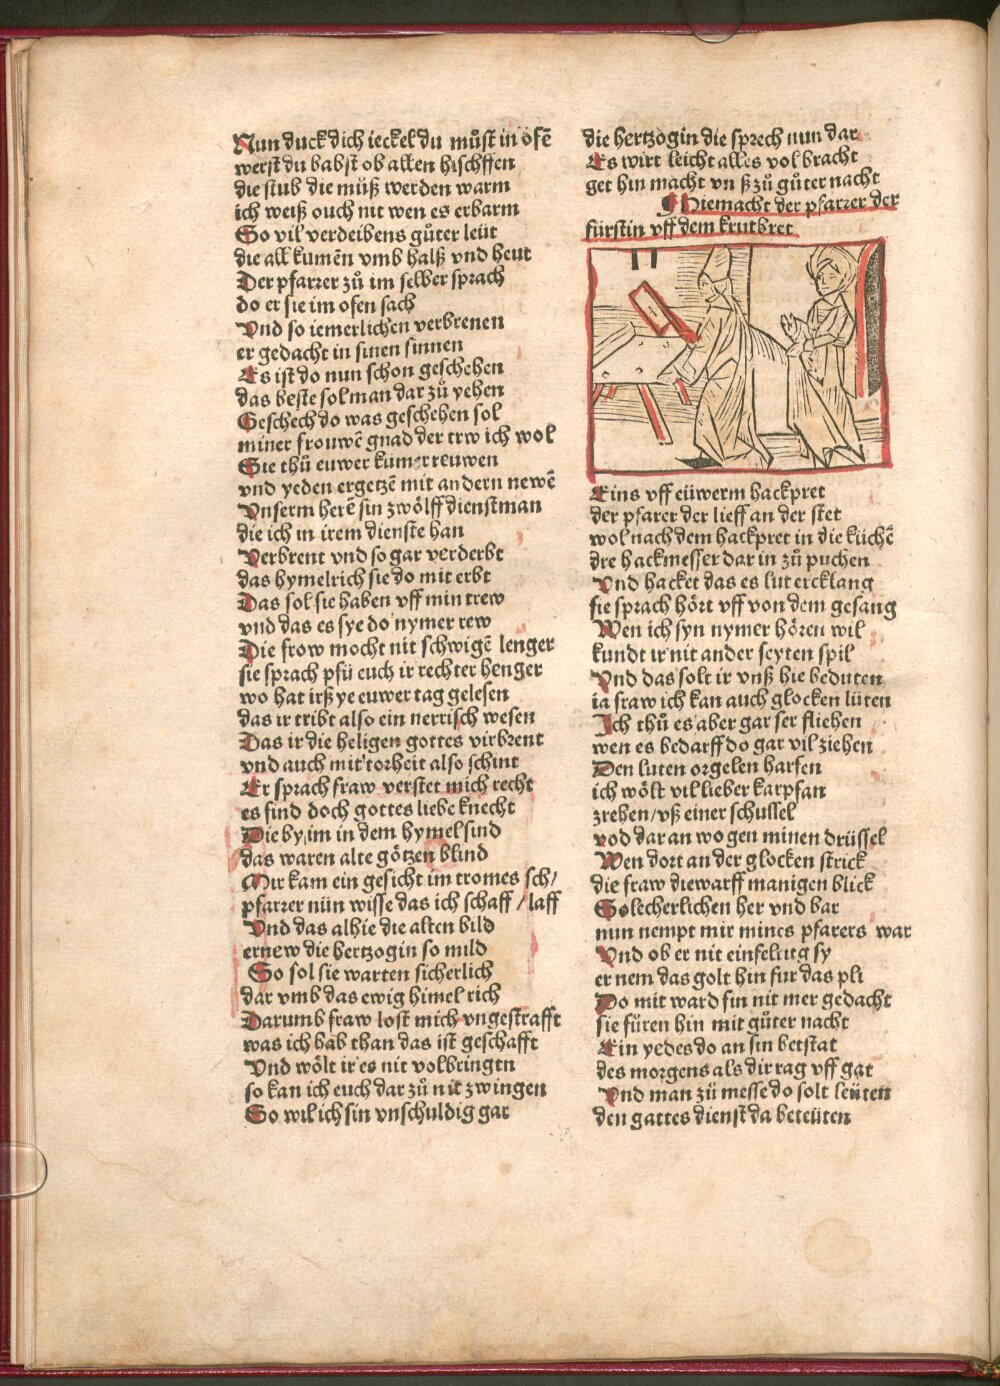 Nun duck dich ieckel du můst in ofē
werst du babst ob allen bischffen
die stub die můß werden warm
ich weiß ouch nit wen es erbarm
So vil verdeibens gůter leüt
die all kumēn vmb halß vnd heut
Der pfarrer zů im selber sprach
do er sie im ofen sach
Vnd so iemerlichen verbrenen
er gedacht in sinen sinnen
Es ist do nun schon geschehen
das beste sol man dar zů yehen
Geschech do was geschehen sol
miner frouwē gnad der trw ich wol
Sie thů euwer kumer reuwen
vnd yeden ergetzē mit andern newē
Vnserm herē sin zwölff dienstman
die ich in irem dienste han
Verbrent vnd so gar verderbt
das hymelrich sie do mit erbt
Das sol sie haben vff min trew
vnd das es sye do nymer rew
Die frow mocht nit schwigē lenger
sie sprach pfü euch ir rechter henger
wo hat irß ye euwer tag gelesen
das ir tribt also ein nerrisch wesen
Das ir die heligen gottes virbrent
vnd auch mit torheit also schint
Er sprach fraw verstet mich recht
es sind doch gottes liebe knecht
Die by im in dem hymel sind
das waren alte götzen blind
Mir kam ein gesicht im tromes sch/
pfarrer nün wisse das ich schaff / laff
Vnd das alhie die alten bild
ernew die hertzogin so mild
So sol sie warten sicherlich
dar vmb das ewig himel rich
Darumb fraw lost mich vngestrafft
was ich hab than das ist geschafft
Vnd wölt ir es nit volbringtn
so kan ich euch dar zů nit zwingen
So wil ich sin vnschuldig gar
die hertzogin die sprech nun dar
Es wirt leicht alles vol bracht
get hin macht vnß zů gůter nacht
¶ Hie macht der pfarrer der
fürstin vff dem krutbret
Eins vff eüwerm hackpret
der pfarer der lieff an der stet
wol nach dem hackpret in die küchē
dre hackmesser dar in zů puchen
Vnd hacket das es lut ercklang
sie sprach hört vff von dem gesang
Wen ich syn nymer hören wil
kundt ir nit ander seyten spil
Vnd das solt ir vnß hie beduten
ia fraw ich kan auch glocken lüten
Ich thů es aber gar ser fliehen
wen es bedarff do gar vil ziehen
Den luten orgelen harfen
ich wölt vil lieber karpfan
zrehen/vß einer schussel
vod dar an wogen minen drüssel
Wen dort an der glocken strick
die fraw die warff manigen blick
So lecherlichen her vnd bar
nun nempt mir mines pfarers war
Vnd ob er nit einfeltig sy
er nem das golt hin fur das pli
Do mit ward sin nit mer gedacht
sie füren hin mit gůter nacht
Ein yedes do an sin betstat
des morgens als dir tag vff gat
Vnd man zü messe do solt leüten
den gattes dienst da beteüten